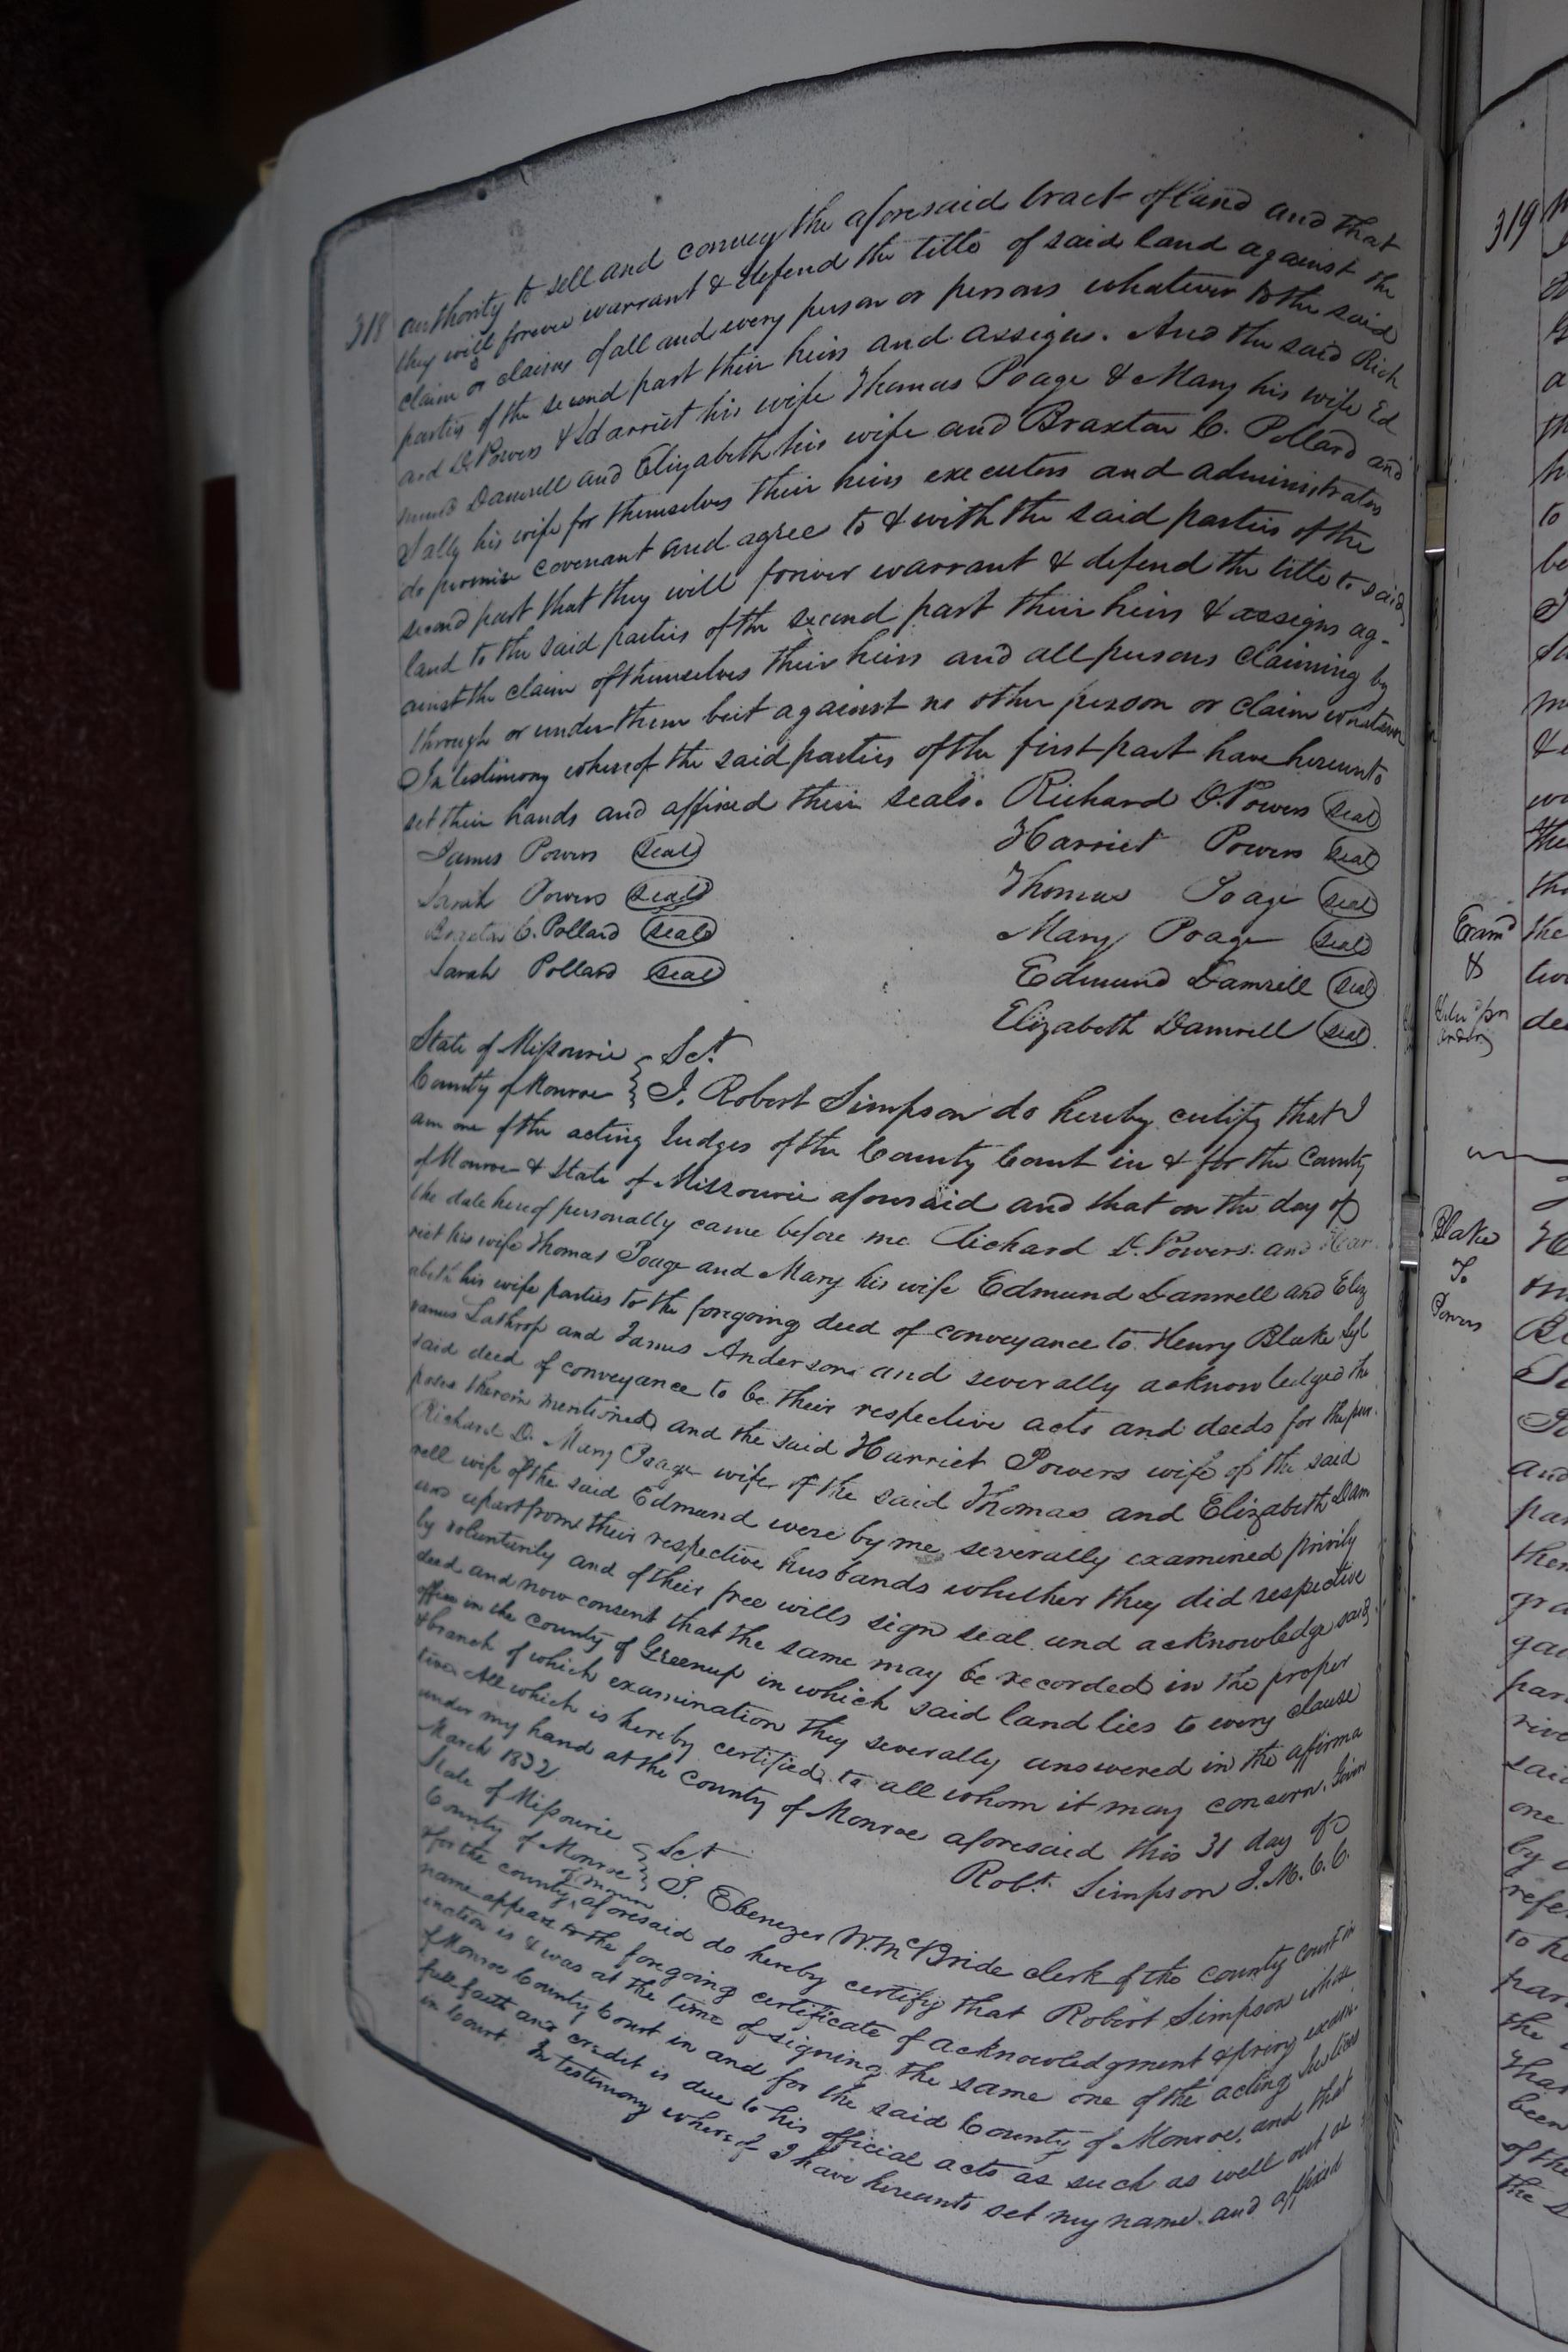 318 authority to sell and convey the aforesaid tract of land and that
they will forever warrant & defend the title of said land against the
claim or claims of all and every person or persons whatever to the said
parties of the second part their heirs and assigns. And the said Rich
ard D. Powers & Harriet his wife Thomas Poage & Mary his wife Ed
mund Damrell and Elizabeth his wife and Braxton C. Pollard and
Sally his wife for themselves their heirs executors and administrators
do promise covenant and agree to & with the said parties of the
second part that they will forever warrant & defend the title to said
land to the said parties of the second part their heirs & assigns ag-
ainst the claim of themselves their heirs and all persons claiming by
through or under them but against no other person or claim whatever
In testimony whereof the said parties of the first part have hereunto
set their hands and affixed their seals. Richard D. Powers seal
James Powers seal Harriet Powers seal
Sarah Powers seal Thomas Poage seal
Braxton C. Pollard seal Mary Poage seal
Sarah Pollard seal Edmund Damrell seal
Elizabeth Damrell seal
State of Missourie Sct.
County of Monroe I. Robert Simpson do hereby certify that I
am one of the acting Judges of the County Court in & for the County
of Monroe & State of Missourie aforesaid and that on the day of
the date hereof personally came before me Richard D. Powers and Har
riet his wife Thomas Poage and Mary his wife Edmund Damrell and Eliz
abeth his wife parties to the foregoing deed of conveyance to Henry Blake Syl
vanus Lathrop and James Anderson and severally acknowledged the
said deed of conveyance to be their respective acts and deeds for the pur-
poses therein mentioned and the said Harriet Powers wife of the said
Richard D. Mary Poage wife of the said Thomas and Elizabeth Dam
rell wife of the said Edmund were by me severally examined privily
and apart from their respective husbands whether they did respective
by voluntarily and of their free wills sign seal and acknowledge said
deed and now consent that the same may be recorded in the proper
office in the county of Greenup in which said land lies to every clause
& branch of which examination they severally answered in the affirma
tive. All which is hereby certified to all whom it may concern. Given
under my hand at the county of Monroe aforesaid this 31 day of
March 1832. Robt. Simpson J. M. C. C.
State of Missourie Sct
County of Monroe I. Ebenezer W. McBride clerk of the county court in
& for the county of Monroe aforesaid do hereby certify that Robert Simpson whose
name appears to the foregoing certificate of acknowledgment & privy exam-
ination is & was at the time of signing the same one of the acting Justices
of Monroe County Court in and for the said County of Monroe, and that
full faith and credit is due to his official acts as such as well out as
in Court. In testimony whereof I have hereunto set my name and affixed
319
Examd
&
Blake
To
Powers